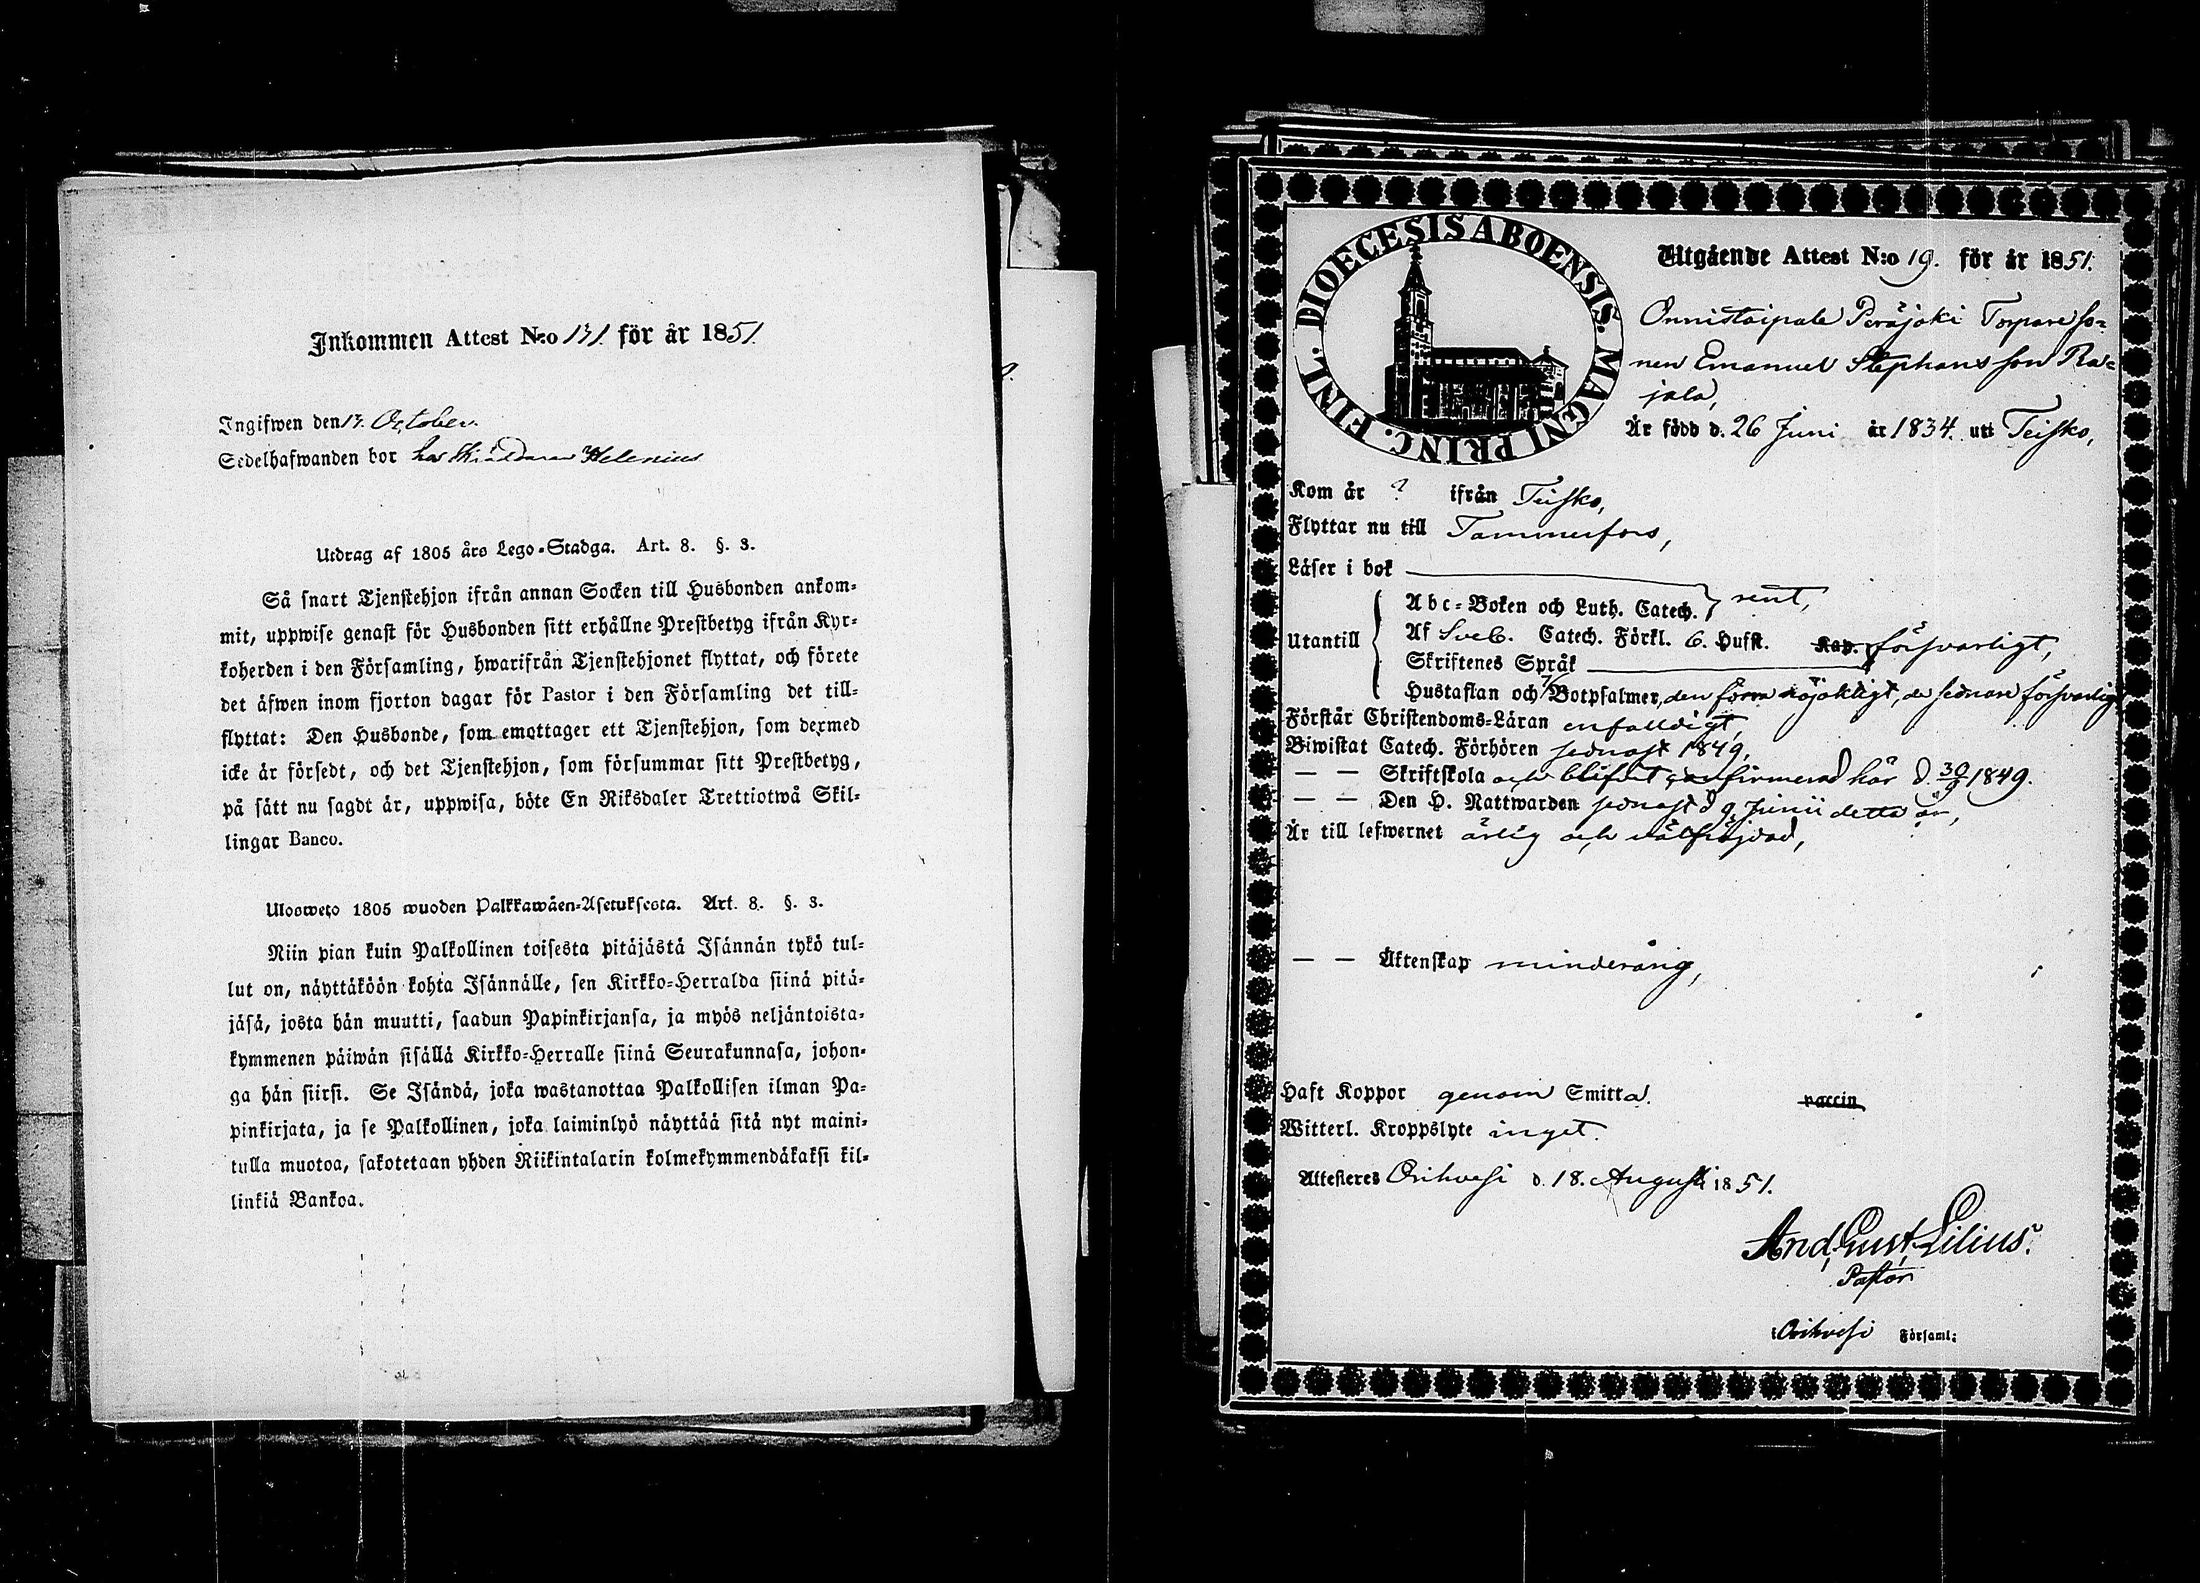 Inkommen Attest N:o 131. för år 1851.
Ingifwen den 13. October.
Sedelhafwanden bor hos Skräddaren Helenius
Utdrag af 1805 års Lego-Stadga. Art. 8. §. 3.
Så snart Tjenstehjon ifrån annan Socken till Husbonden ankom-
mit, uppwise genast för Husbonden sitt erhållne Prestbetyg ifrån Kyr-
koherden i den Församling, hwarifrån Tjenstehjonet flyttat, och förete
det äfwen inom fjorton dagar för Pastor i den Församling det till-
flyttat: Den Husbonde, som emottager ett Tjenstehjon, som dermed
icke är försedt, och det Tjenstehjon, som försummar sitt Prestbetyg,
på sätt nu sagdt är, uppwisa, böte En Riksdaler Trettiotwå Skil-
lingar Banco.
Ulosweto 1805 wuoden Palkkawäen-Asetuksesta. Art. 8. §. 3.
Niin pian kuin Palkollinen toisesta pitäjästä Isännän tykö tul-
lut on, näyttäköön kohta Isännälle, sen Kirkko-Herralda siinä pitä-
jäsä, josta hän muutti, saadun Papinkirjansa, ja myös neljäntoista-
kymmenen päiwän sisällä Kirkko-Herralle siinä Seurakunnasa, johon-
ga hän siirsi. Se Isändä, joka wastanottaa Palkollisen ilman Pa-
pinkirjata, ja se Palkollinen, joka laiminlyö näyttää sitä nyt maini-
tulla muotoa, sakotetaan yhden Riikintalarin kolmekymmendäkaksi kil-
linkiä Bankoa.
DIOECESIS ABOENSIS. MAGNI PRINC. FINL.
Utgående Attest N:o 19. för år 1851.
Onnistaipale Peräjoki Torpareso-
nen Emanuel Stephansson Ra-
jala,
Är född d. 26 Juni år 1834. uti Teisko,
Kom år ? ifrån Teisko,
Flyttar nu till Tammerfors,
Läser i bok
Utantill
Abc-Boken och Luth. Catech. rent,
Af Sveb. Catech. Förkl. 6. Hufst. Kap. försvarligt,
Skriftenes Språk
Hustaflan och 7 Botpsalmer, den förra nöjaktigt, de sednare försvarligt
Förstår Christendoms-Läran enfaldigt,
Biwistat Catech. Förhören sednast 1849,
— — Skriftskola och blifvit confirmerad här d. 30/9 1849.
— — Den H. Nattwarden sednast d 9 Junii detta år,
Är till lefwernet ärlig och välfrejdad,
— — Äktenskap minderårig,
Haft Koppor genom Smitta. vaccin
Witterl. Kroppslyte inget.
Attesteres Orihvesi d. 18. Augusti 1851.
And. Gust. Lilius.
Pastor
i Orihvesi Församl: